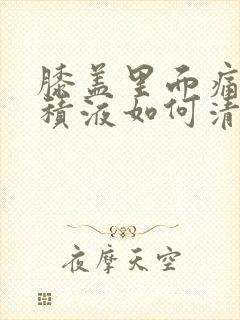 膝盖里面痛
积液如何清
夜摩天空